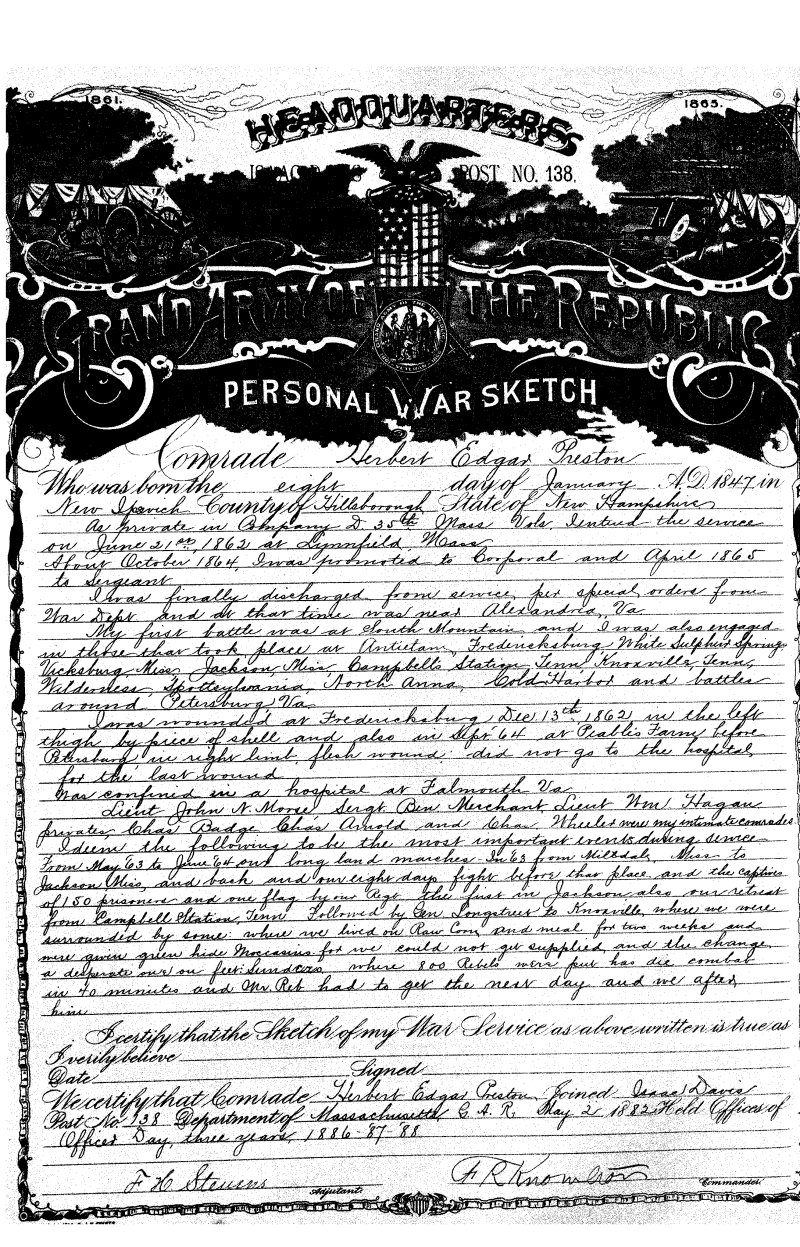 1861.
1865.
HEADQUARTERS
POST NO. 138.
GRAND ARMY OF THE REPUBLIC
PERSONAL WAR SKETCH
Comrade Herbert Edgar Preston
Who was born the eight day of January A.D. 1847 in
New Ipswich County of Hillsborough State of New Hampshire
As private in Company D 35th Mass Vols, I entred the service
on June 21st, 1862 at Lynnfield, Mass
About October 1864, I was promoted to Corporal and April 1865
to Sergeant
I was finally discharged from service, per special orders from
War Dept and at that time was near Alexandria, Va
My first battle was at South Mountain and I was also engaged
in those that took place at Antietam, Fredericksburg White Sulphur Springs
Vicksburg, Miss, Jackson, Miss, Campbells Station, Tenn Knoxville, Tenn,
Wilderness, Spottsylvania, North Anna, Cold Harbor and battles
around Petersburg Va
I was wounded at Fredericksburg Dec 13th, 1862 in the left
thigh by piece of shell and also in Sept '64 at Peables Farm before
Petersburg in right limb, flesh wound: did not go to the hospital,
for the last wound
Was confined in a hospital at Falmouth Va
Lieut John N. Morse, Sergt Ben Merchant, Lieut Wm Hagan
privates, Chas Badge Chas Arnold and Chas Wheeler were my intimate comrades
I deem the following to be the most important events during service
From May '63 to June '64 our long land marches. In '63 from Milldale, Miss to
Jackson Miss, and back and our eight day fight before that place and the captives
of 150 prisoners and one flag by our Regt the first in Jackson, also our retreat
from Campbell Station, Tenn Followed by Gen Longstreet to Knoxville, where we were
surrounded by some: where we lived on Raw Corn and meal for two weeks and
were given green hide Moccasins for we could not get supplied, and the change
a desperate one on Fort Sunders where 800 Rebels were put
in 40 minutes and Mr. Reb had to get the next day and we after
him
I certify that the Sketch of my War Service as above written is true as
I verily believe
Date Signed
We certify that Comrade Herbert Edgar Preston Joined Isaac Davis
Post No. 138 Department of Massachusetts G. A. R. May 2 1882 Held Offices of
Officer Day, three years, 1886-87-88
F H Stevens Adjutant.
F R Knowlton Commander.